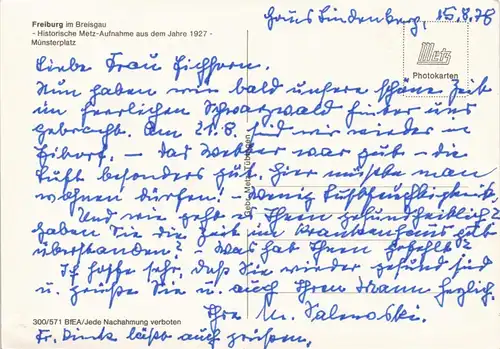 Freiburg im Breisgau
- Historische Metz-Aufnahme aus dem Jahre 1927 -
Münsterplatz
Haus Lindenberg, 15.8.78
Metz
Photokarten
Liebe Frau Eichhorn.
Nun haben wir bald unsere schöne Zeit
im herrlichen Schwarzwald hinter uns
gebracht. Am 21.8. sind wir wieder in
- Das Wetter war gut - die
Luft besonders gut. Hier müsste man
wohnen dürfen! - Wenig Luftfeuchtigkeit.
Und wie geht es Ihnen gesundheitlich?
Haben Sie die Zeit im Krankenhaus gut
überstanden? - Was hat Ihnen gefehlt?
Ich hoffe sehr, daß Sie wieder gesund sind
u. grüße Sie u. auch Ihren Mann herzlich.
Ihre M.
Fr. läßt auch grüßen.
Gebr. Metz Tübingen
300/571 BfEA/Jede Nachahmung verboten